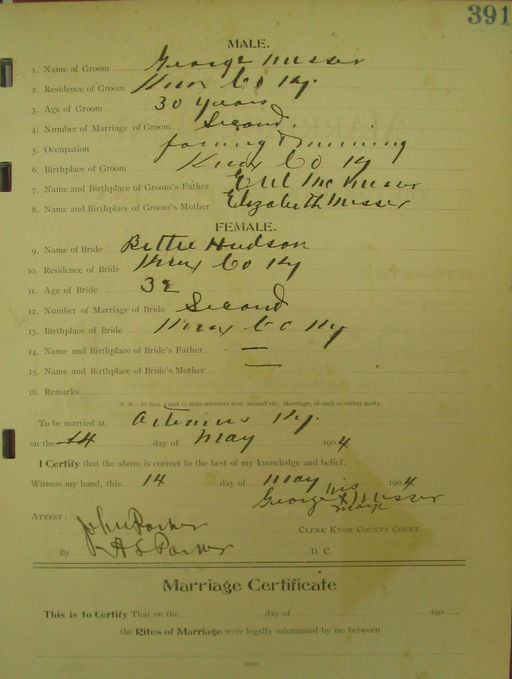 391
MALE.
1. Name of Groom George Messer
2. Residence of Groom Knox Co Ky.
3. Age of Groom 30 years
4. Number of Marriage of Groom Second.
5. Occupation farming & mining
6. Birthplace of Groom Knox Co Ky
7. Name and Birthplace of Groom's Father Messer
8. Name and Birthplace of Groom's Mother Elizabeth Messer
FEMALE.
9. Name of Bride Bettie Hudson
10. Residence of Bride Knox Co Ky
11. Age of Bride 32
12. Number of Marriage of Bride Second
13. Birthplace of Bride Knox Co Ky
14. Name and Birthplace of Bride's Father —
15. Name and Birthplace of Bride's Mother —
16. Remarks
N. B.—At Nos. 4 and 12 state whether first, second etc., Marriage, of each or either party.
To be married at Artemus Ky.
on the 14 day of May 1904
I Certify that the above is correct to the best of my knowledge and belief.
Witness my hand, this 14 day of May 1904
George his X mark Messer
ATTEST:
John Parker
CLERK KNOX COUNTY COURT.
By H S Parker D. C.
Marriage Certificate
This is to Certify That on the day of 190
the Rites of Marriage were legally solemnized by me between
AND